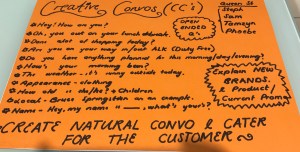 Creative Convos (CC's)
Hey! How are you?
Oh, you out on your lunch break.
OPEN ENDED Q's
Queen 33
Steph
Sam
Tamsyn
Tal
Phoebe
Are you on your way in/out ALK (Duty Free)
Do you have anything planned for this morning/evening/day
How's your morning been?
The weather, it's sunny outside today.
Appearance - clothing
How old is he/she? & Children
Local - Bruce Springsteen as an example.
Name - Hey, my name is ___, what's yours?
Explain NEW BRANDS & Product/ Current Promo
CREATE NATURAL CONVO & CATER
FOR THE CUSTOMER